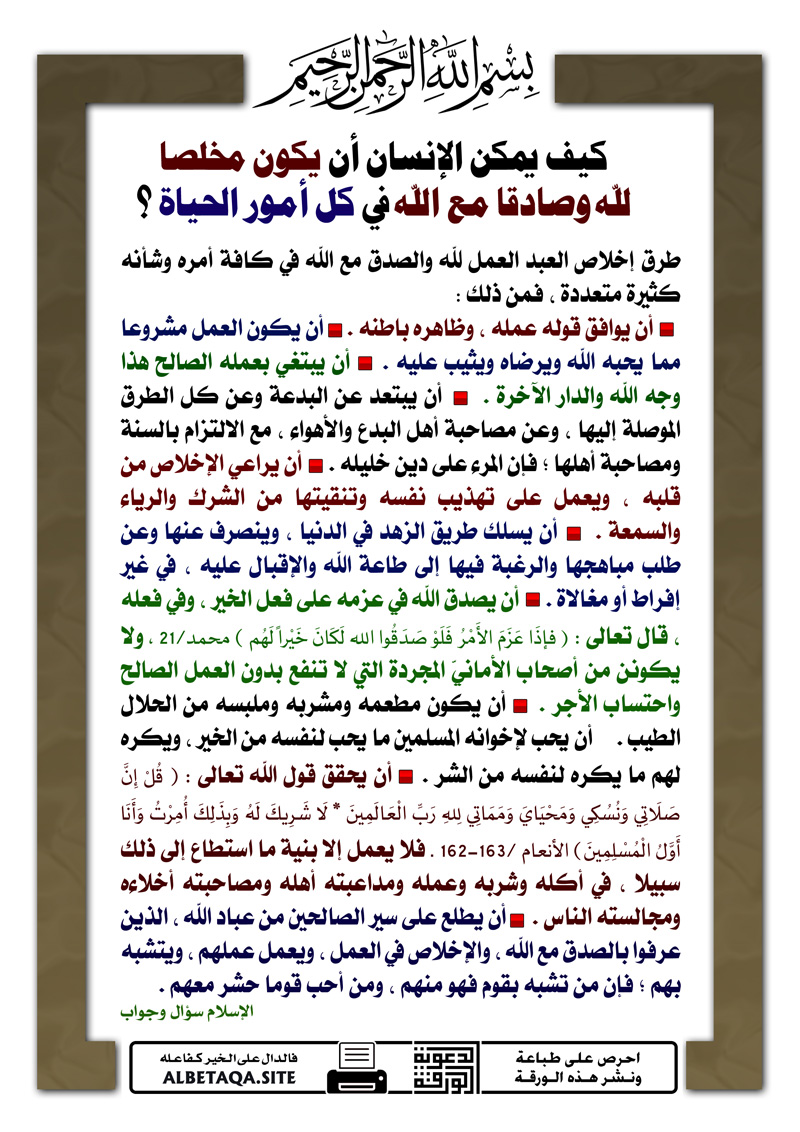 بسم الله الرحمن الرحيم
كيف يمكن الإنسان أن يكون مخلصا
لله وصادقا مع الله في كل أمور الحياة ؟
طرق إخلاص العبد العمل لله والصدق مع الله في كافة أمره وشأنه
كثيرة متعددة ، فمن ذلك :
■ أن يوافق قوله عمله ، وظاهره باطنه . ■ أن يكون العمل مشروعا
مما يحبه الله ويرضاه ويثيب عليه . ■ أن يبتغي بعمله الصالح هذا
وجه الله والدار الآخرة . ■ أن يبتعد عن البدعة وعن كل الطرق
الموصلة إليها ، وعن مصاحبة أهل البدع والأهواء ، مع الالتزام بالسنة
ومصاحبة أهلها ؛ فإن المرء على دين خليله . ■ أن يراعي الإخلاص من
قلبه ، ويعمل على تهذيب نفسه وتنقيتها من الشرك والرياء
والسمعة . ■ أن يسلك طريق الزهد في الدنيا ، وينصرف عنها وعن
طلب مباهجها والرغبة فيها إلى طاعة الله والإقبال عليه ، في غير
إفراط أو مغالاة . ■ أن يصدق الله في عزمه على فعل الخير ، وفي فعله
، قال تعالى : ( فإذَا عَزَمَ الأَمْرُ فَلَوْ صَدَقُوا الله لَكَانَ خَيْراً لَهُم ) محمد/21 ، ولا
يكونن من أصحاب الأمانيّ المجردة التي لا تنفع بدون العمل الصالح
واحتساب الأجر . ■ أن يكون مطعمه ومشربه وملبسه من الحلال
الطيب . أن يحب لإخوانه المسلمين ما يحب لنفسه من الخير ، ويكره
لهم ما يكره لنفسه من الشر . ■ أن يحقق قول الله تعالى : ( قُلْ إِنَّ
صَلَاتِي وَنُسُكِي وَمَحْيَايَ وَمَمَاتِي لِلهِ رَبِّ الْعَالَمِينَ * لَا شَرِيكَ لَهُ وَبِذَلِكَ أُمِرْتُ وَأَنَا
أَوَّلُ الْمُسْلِمِينَ) الأنعام /163-162 . فلا يعمل إلا بنية ما استطاع إلى ذلك
سبيلا ، في أكله وشربه وعمله ومداعبته أهله ومصاحبته أخلاءه
ومجالسته الناس . ■ أن يطلع على سير الصالحين من عباد الله ، الذين
عرفوا بالصدق مع الله ، والإخلاص في العمل ، ويعمل عملهم ، ويتشبه
بهم ؛ فإن من تشبه بقوم فهو منهم ، ومن أحب قوما حشر معهم .
الإسلام سؤال وجواب
احرص على طباعة
ونشر هذه الورقة
الورقة الدعوية
فالدال على الخير كفاعله
ALBETAQA.SITE